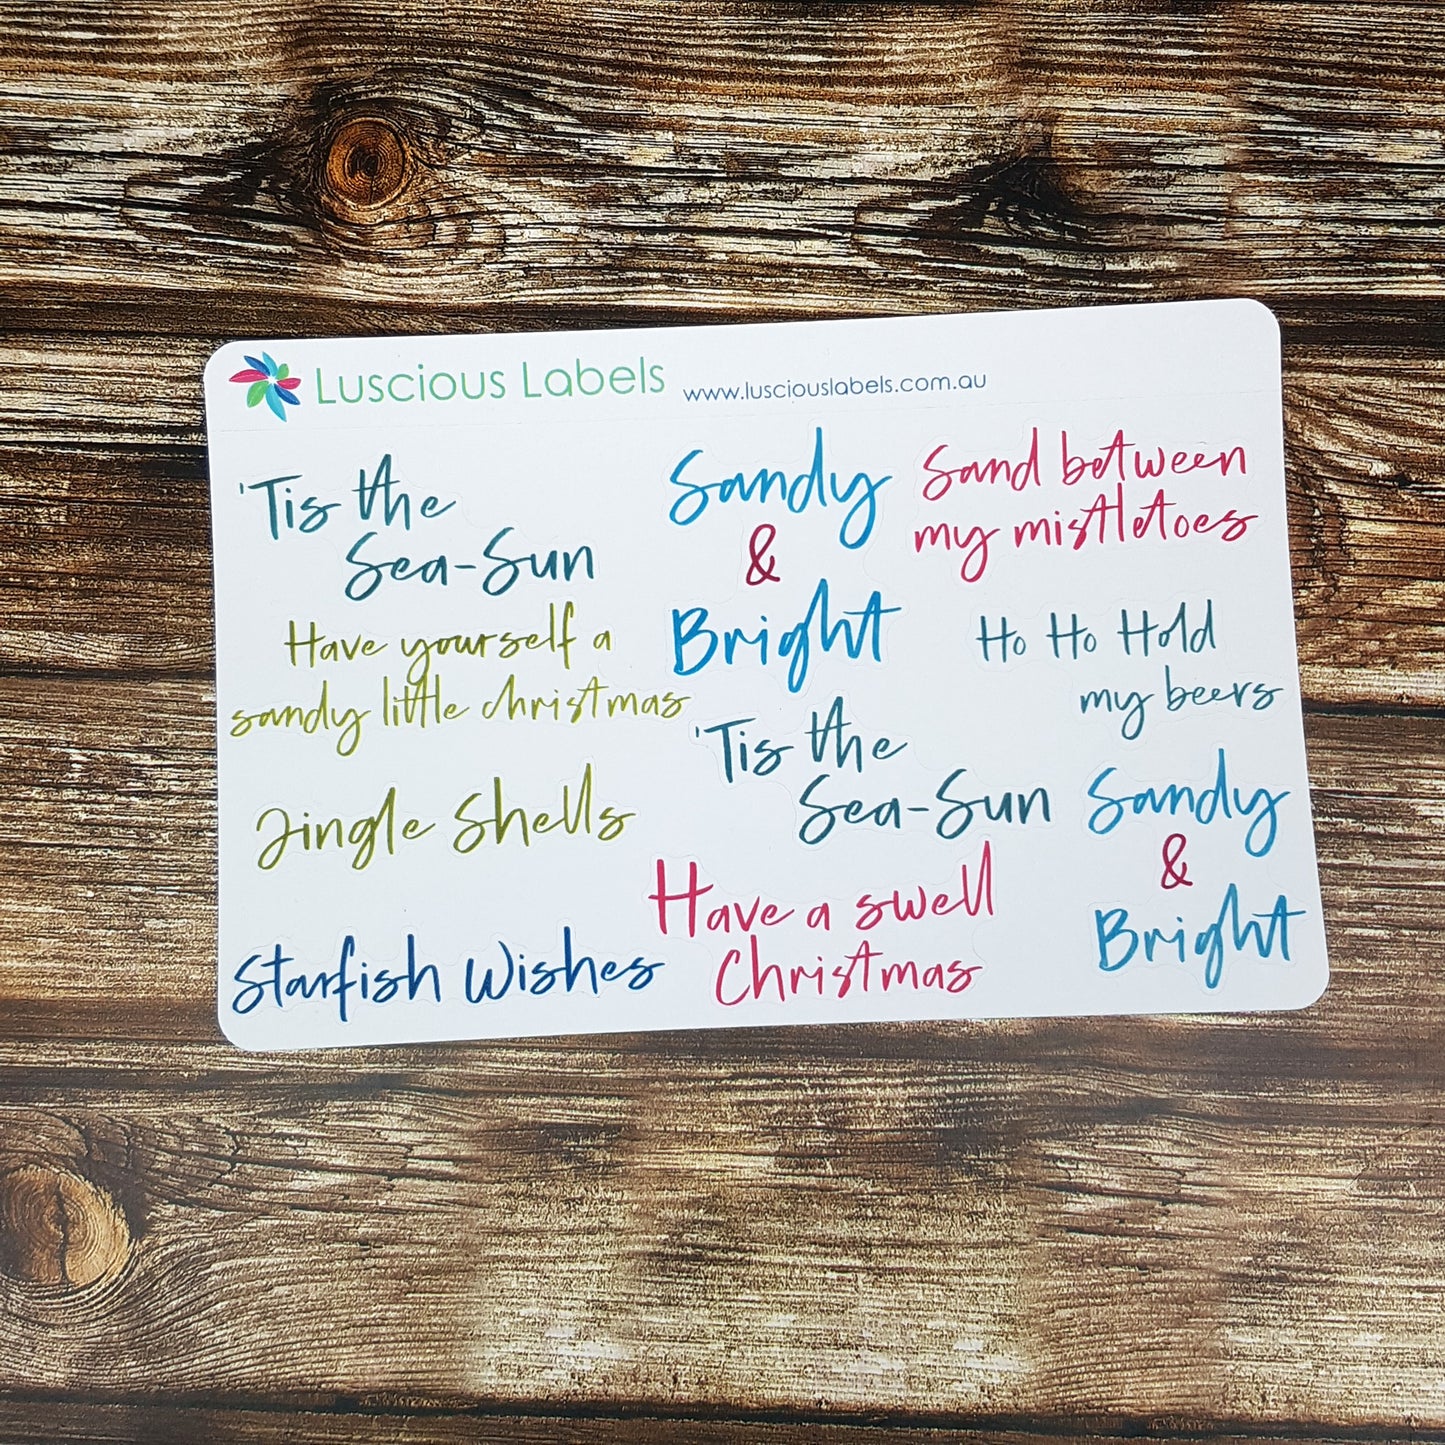 Luscious Labels www.lusciouslabels.com.au
'Tis the
Sea-Sun
Sandy
&
Bright
Sand between
my mistletoes
Have yourself a
sandy little christmas
Ho Ho Hold
my beers
'Tis the
Sea-Sun
Jingle Shells
Sandy
&
Bright
Have a swell
Christmas
Starfish Wishes